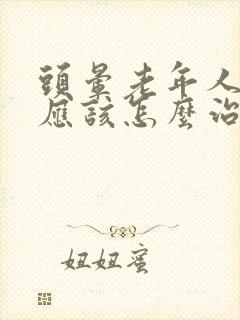 頭暈老年人
應該怎麼治
妞妞蜜